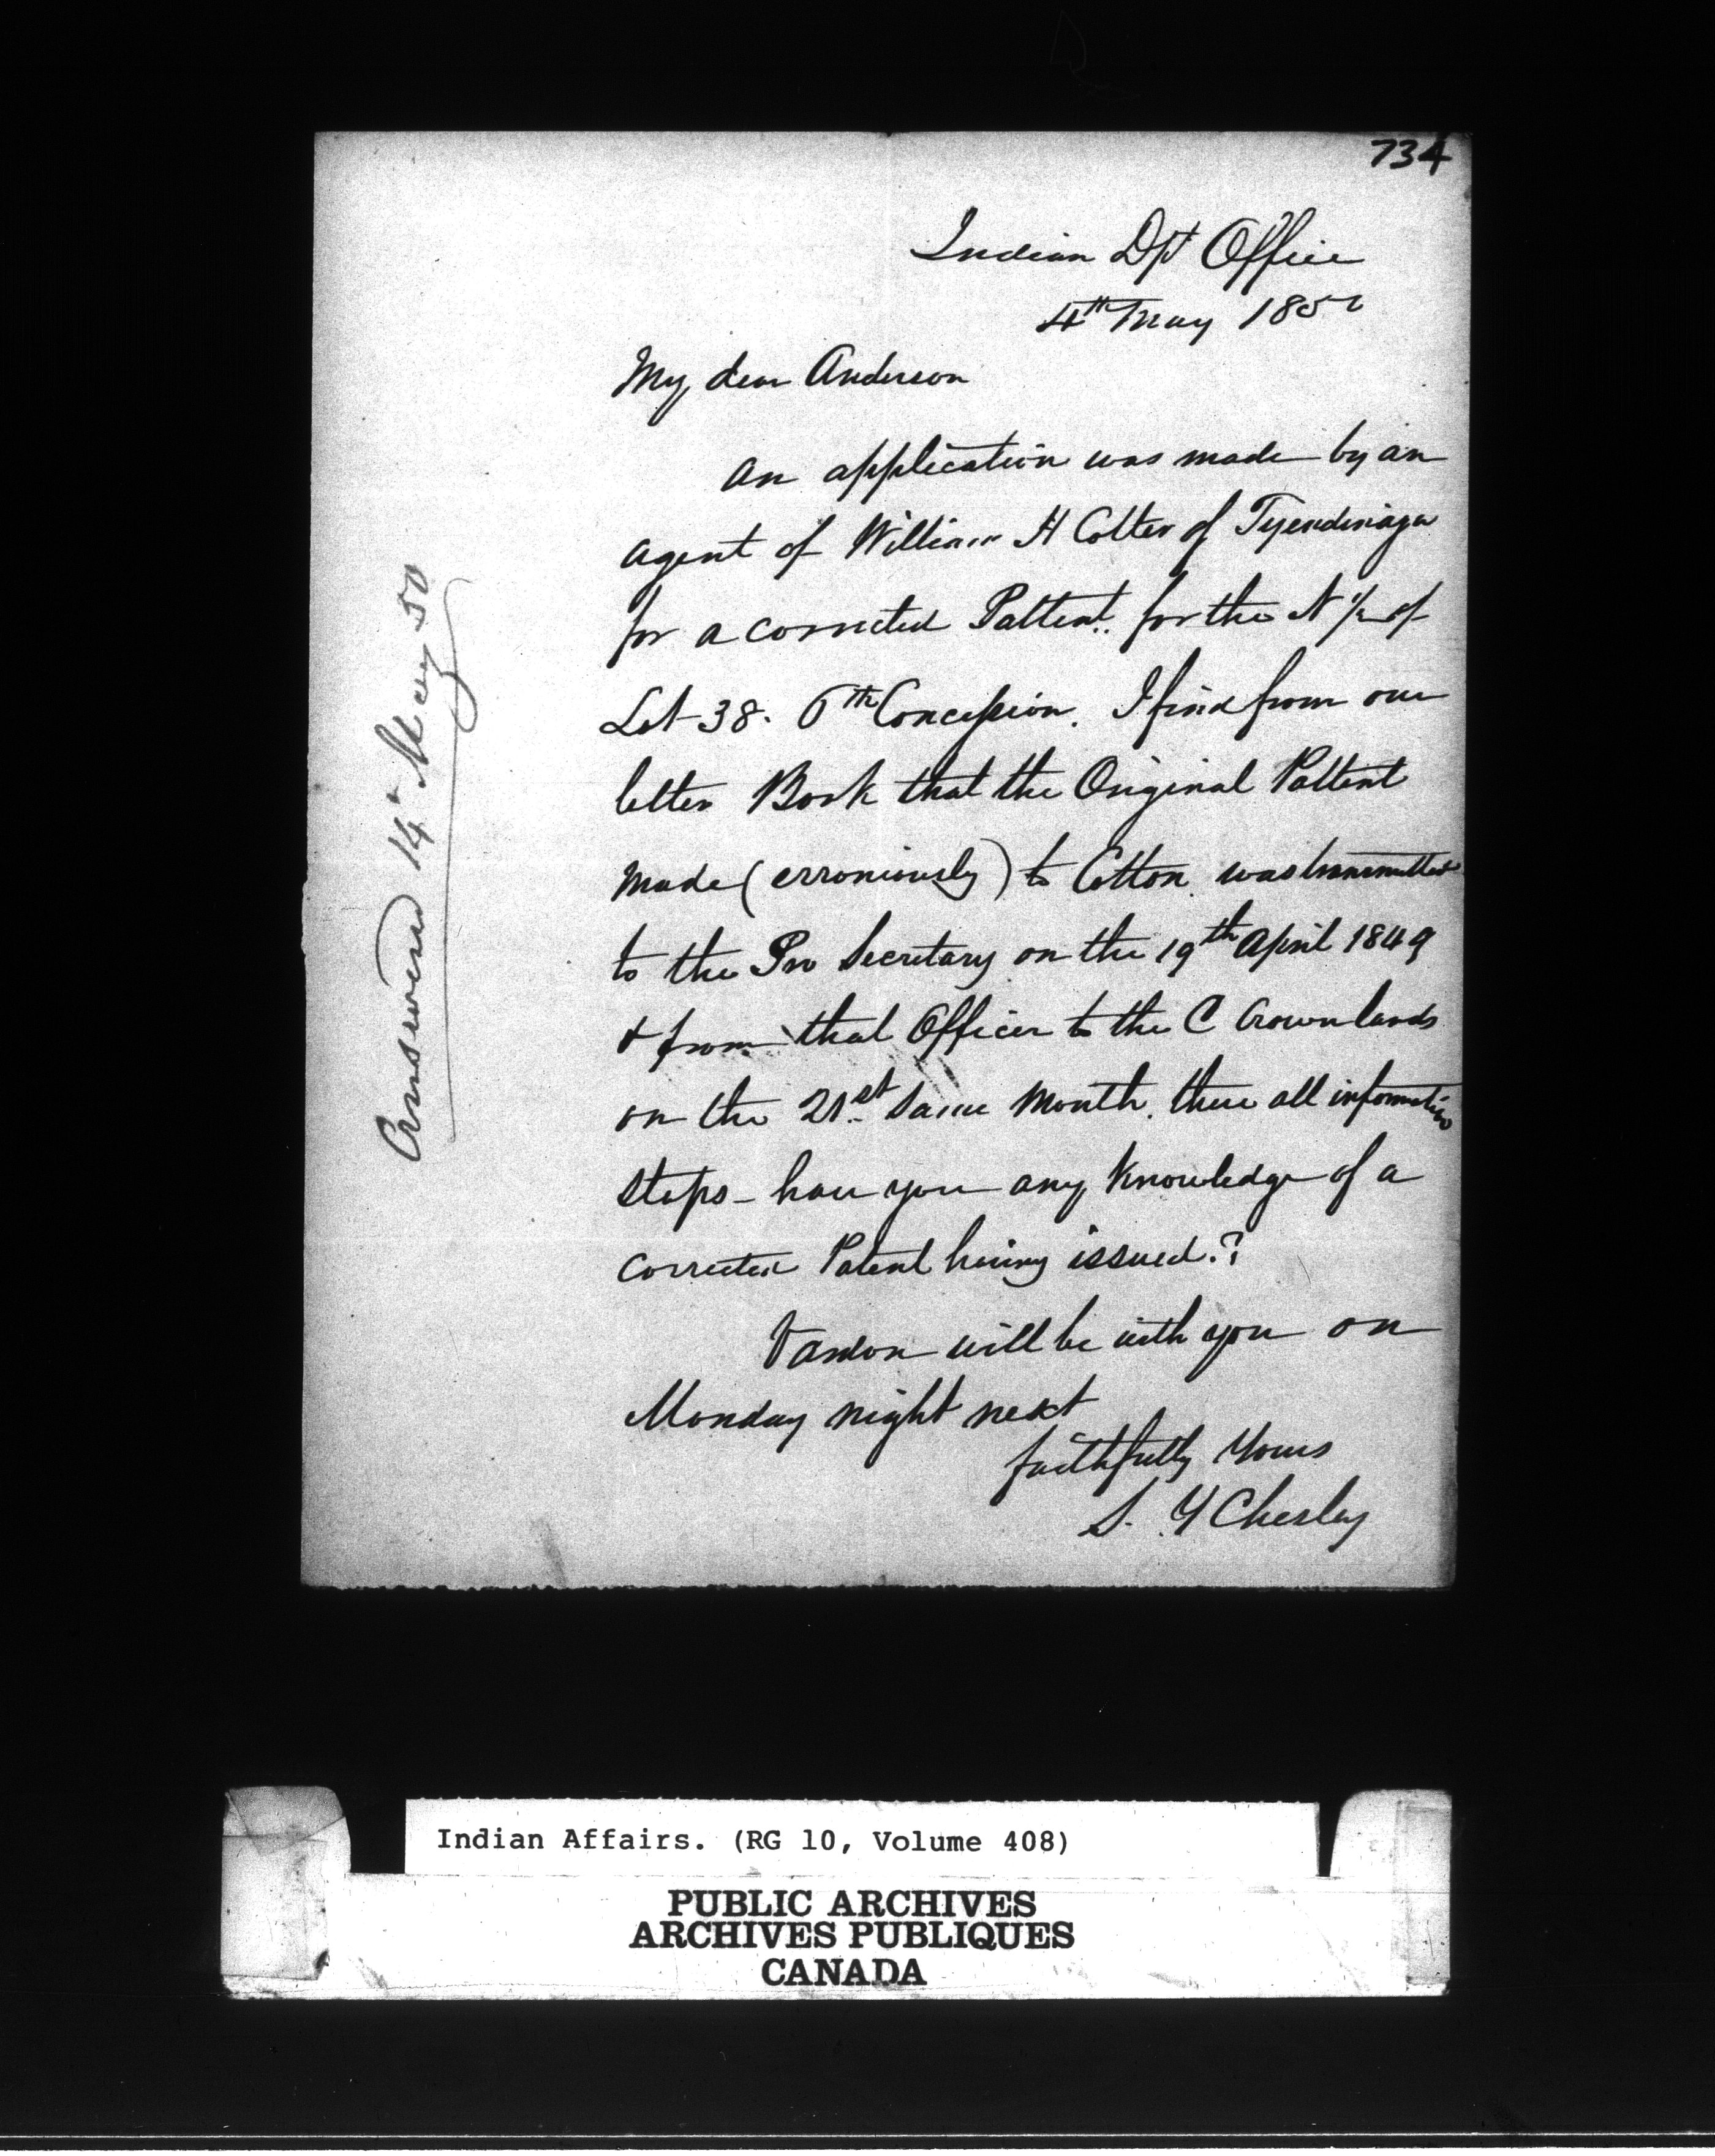 734
Indian Dpt Office
4th May 185
My dear Anderson
An application was made by an
agent of William H Cotter of Tyendinaga
for a corrected Pattent for the N ½ of
Lot 38. 6th Concession. I find from our
letter Book that the Original Pattent
made (erroniously) to Cotton was transmitted
to the Pro Secretary on the 19th April 1849
& from that Officer to the C Crown lands
on the 21st same month. there all information
stops – have you any knowledge of a
corrected Patent having issued.?
Vardon will be with you on
Monday night next
faithfully Yours
S. Y Chesley
Answered 14th May 50
Indian Affairs. (RG 10, Volume 408)
PUBLIC ARCHIVES
ARCHIVES PUBLIQUES
CANADA